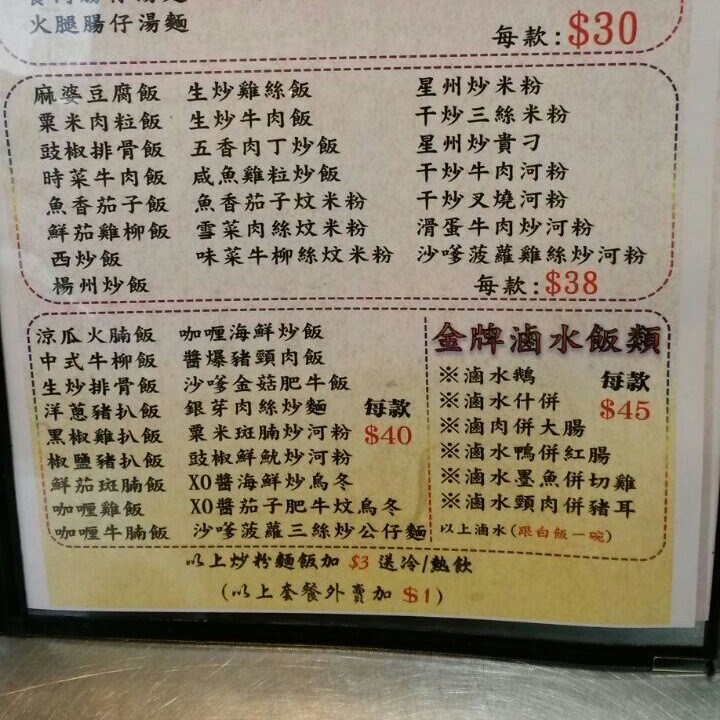 火腿腸仔湯麵
每款:$30
麻婆豆腐飯 生炒雞絲飯 星州炒米粉
粟米肉粒飯 生炒牛肉飯 干炒三絲米粉
豉椒排骨飯 五香肉丁炒飯 星州炒貴刁
時菜牛肉飯 咸魚雞粒炒飯 干炒牛肉河粉
魚香茄子飯 魚香茄子炆米粉 干炒叉燒河粉
鮮茄雞柳飯 雪菜肉絲炆米粉 滑蛋牛肉炒河粉
西炒飯 味菜牛柳絲炆米粉 沙嗲菠蘿雞絲炒河粉
楊州炒飯 每款:$38
涼瓜火腩飯 咖喱海鮮炒飯
中式牛柳飯 醬爆豬頸肉飯
生炒排骨飯 沙嗲金菇肥牛飯
洋蔥豬扒飯 銀芽肉絲炒麵 每款
黑椒雞扒飯 粟米斑腩炒河粉 $40
椒鹽豬扒飯 豉椒鮮魷炒河粉
鮮茄斑腩飯 XO醬海鮮炒烏冬
咖喱雞飯 XO醬茄子肥牛炆烏冬
咖喱牛腩飯 沙嗲菠蘿三絲炒公仔麵
金牌滷水飯類
※滷水鵝 每款
※滷水什併 $45
※滷肉併大腸
※滷水鴨併紅腸
※滷水墨魚併切雞
※滷水頸肉併豬耳
以上滷水(跟白飯一碗)
以上炒粉麵飯加 $3 送冷/熱飲
(以上套餐外賣加 $1)